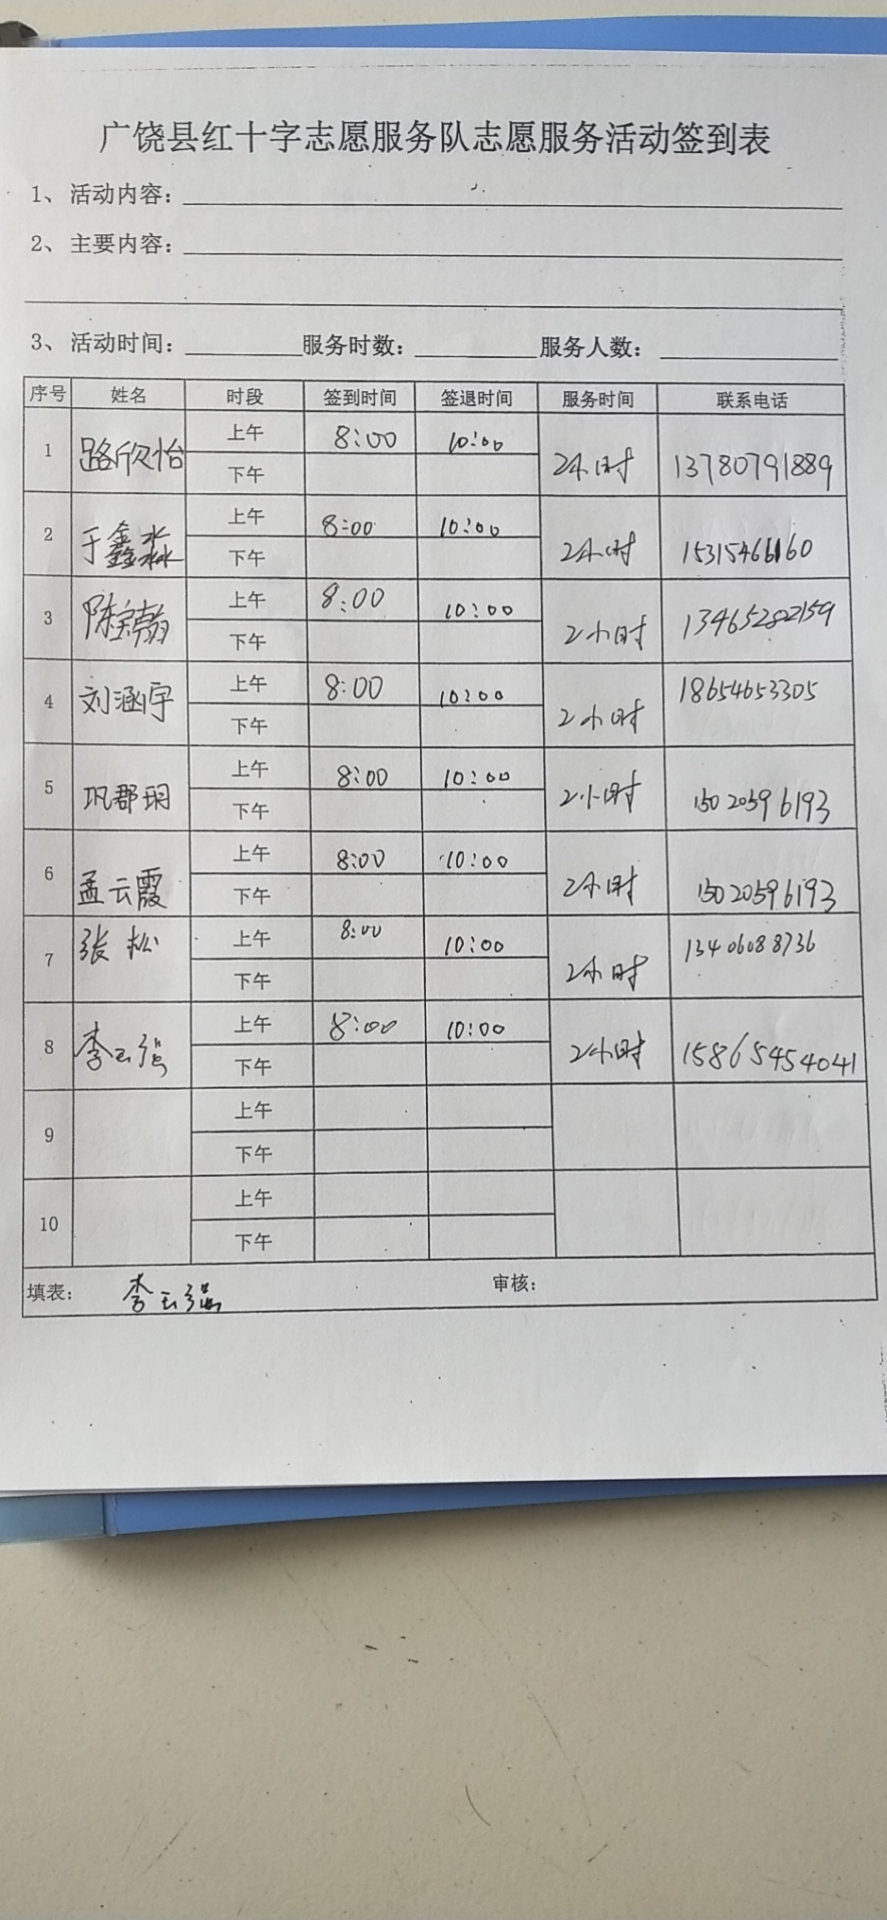 广饶县红十字志愿服务队志愿服务活动签到表
1、活动内容：
2、主要内容：
3、活动时间： 服务时数： 服务人数：
序号 姓名 时段 签到时间 签退时间 服务时间 联系电话
1 路欣怡 上午 8:00 10:00 2小时 13780791889
下午
2 于鑫淼 上午 8:00 10:00 2小时 15315466160
下午
3 陈宝翰 上午 8:00 10:00 2小时 13465282159
下午
4 刘涵宇 上午 8:00 10:00 2小时 18654653305
下午
5 巩郡玥 上午 8:00 10:00 2小时 15020596193
下午
6 孟云霞 上午 8:00 10:00 2小时 15020596193
下午
7 张松 上午 8:00 10:00 2小时 13406088736
下午
8 李云强 上午 8:00 10:00 2小时 15865454041
下午
9 上午
下午
10 上午
下午
填表： 李云强 审核：